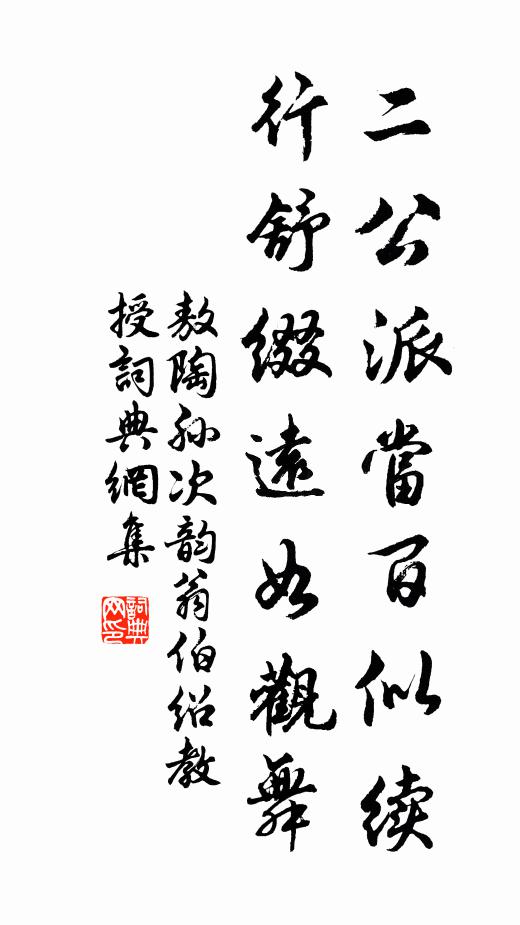 二公派當百似续
行舒缀遠如觀舞
敖陶孙次韵翁伯绍教
授詞典網集
詞典
网印